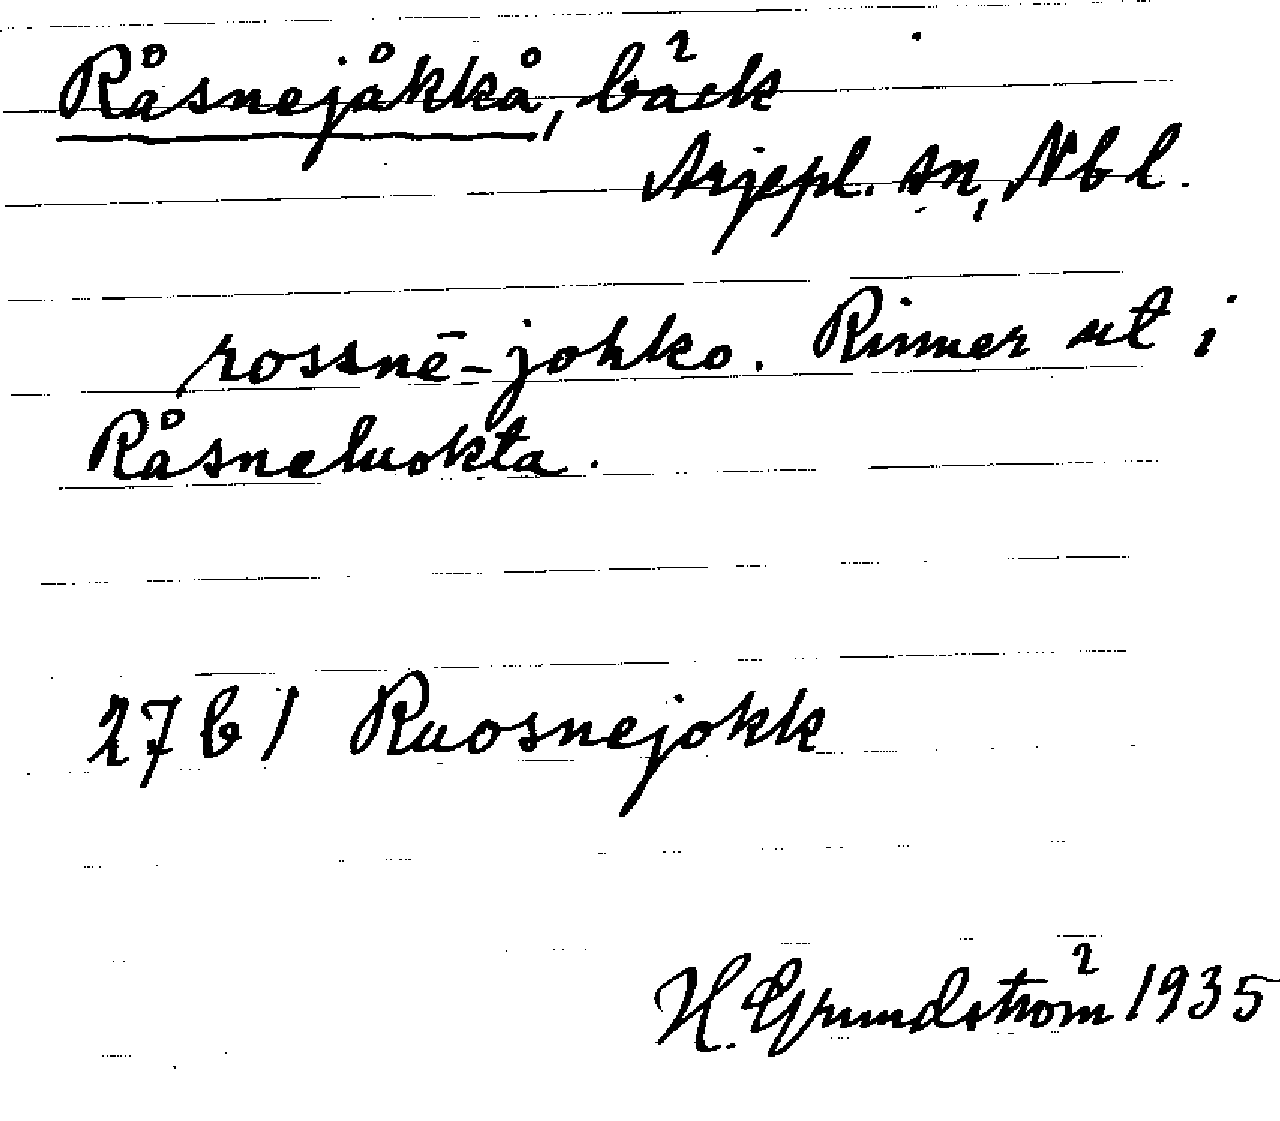 Råsnejåkkå, bäck
Arjepl. sn, Nbl.
rossnē-johko. Rinner ut i
Råsneluokta.
27 b / Ruosnejokk
H. Grundström 1935